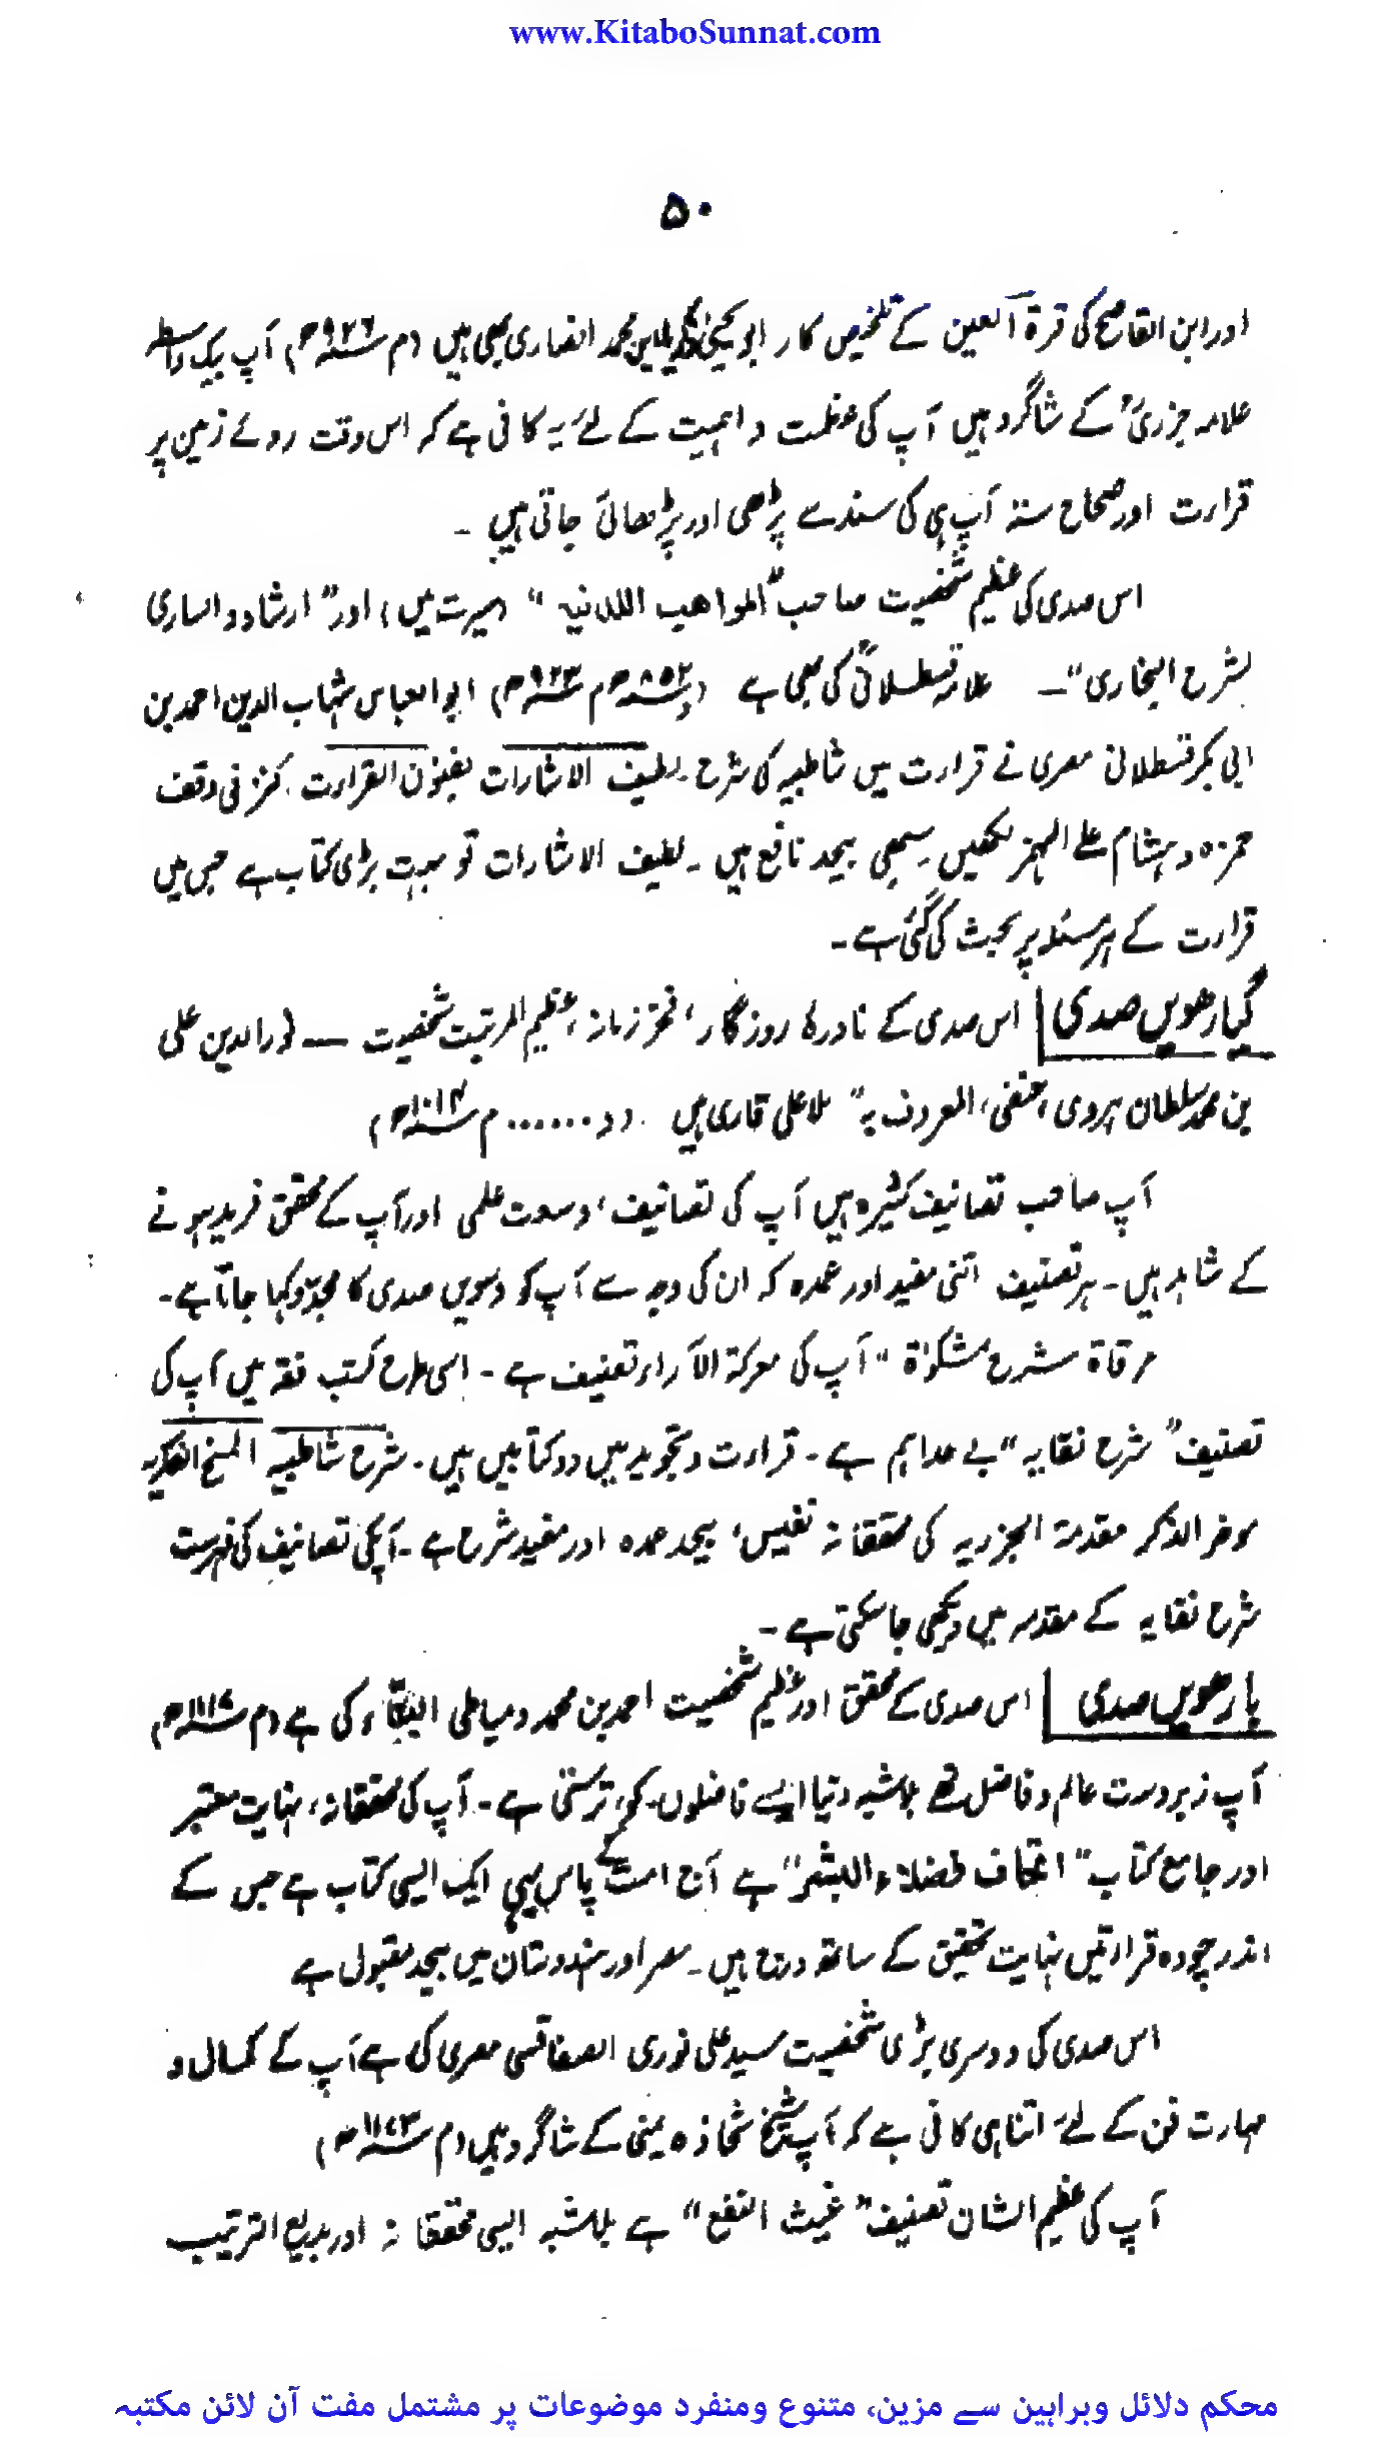 www.KitaboSunnat.com
۵۰
اور ابن القاصح کی قرۃ العین کے تلخیص کار ابو یحییٰ زکریا بن محمد انصاری بھی ہیں (م ۹۲۶ھ) آپ بیک واسطہ
علامہ جزریؒ کے شاگرد ہیں آپ کی عظمت و اہمیت کے لئے یہ کافی ہے کہ اس وقت روئے زمین پر
قرارت اور صحاح ستہ آپ ہی کی سند سے پڑھی اور پڑھائی جاتی ہیں ۔
اس صدی کی عظیم شخصیت صاحب "المواھب اللدنیہ" (سیرت میں) اور "ارشاد و الساری
لشرح البخاری" ۔ علامہ قسطلانیؒ کی بھی ہے (د ۸۵۲ھ م ۹۲۳ھ) ابو العباس شہاب الدین احمد بن
ابی بکر قسطلانی مصری نے قرارت میں شاطبیہ کا شرح ۔ لطیف الاشارات بفنون القرارت ۔ کنز فی وقف
حمزہ و ہشام علی الہمز لکھیں ۔ سبھی بیحد نافع ہیں ۔ لطیف الاشارات تو بہت بڑی کتاب ہے جس میں
قرارت کے ہر مسئلہ پر بحث کی گئی ہے ۔
گیارھویں صدی اس صدی کے نادرہا روزگار، فخر زمانہ، عظیم المرتبت شخصیت ــ (رالدین علی
بن محمد سلطان ہروی، حنفی، المعروف بہ" ملا علی قاری ہیں (د ...... م ۱۰۱۴ھ)
آپ صاحب تصانیف کثیرہ ہیں آپ کی تصانیف، وسعت علمی اور آپ کے محقق فرید ہونے
کے شاہد ہیں ۔ ہر تصنیف اتنی مفید اور عمدہ کہ ان کی وجہ سے آپ کو دسویں صدی کا مجدّد کہا جاتا ہے ۔
مرقاۃ شرح مشکوٰۃ" آپ کی معرکۃ الآراء تصنیف ہے ۔ اسی طرح کتب فقہ میں آپ کی
تصنیف "شرح نقایہ" بے حد اہم ہے ۔ قراءت و تجوید میں دو کتابیں ہیں ۔ شرح شاطبیہ المنح الفکریہ
موخر الذکر مقدمۃ الجزریہ کی محققانہ نفیس، بیحد عمدہ اور مفید شرح ہے ۔ آپکی تصانیف کی فہرست
شرح نقایہ کے مقدمہ میں دیکھی جا سکتی ہے ۔
بارھویں صدی اس صدی کے محقق اور عظیم شخصیت احمد بن محمد دمیاطی البنّاء کی ہے (م ۱۱۱۷ھ)
آپ زبردست عالم و فاضل تھے بلاشبہ دنیا ایسے فاضلوں کو ترستی ہے ۔ آپ کی محققانہ، نہایت معتبر
اور جامع کتاب "اتحاف فضلاء البشر" ہے آج امت کے پاس یہی ایک ایسی کتاب ہے جس کے
اندر چودہ قرارتیں نہایت تحقیق کے ساتھ درج ہیں ۔ مصر اور ہندوستان میں بیحد مقبول ہے
اس صدی کی دوسری بڑی شخصیت سید علی نوری الصفاقسی مصری کی ہے آپ کے کمال و
مہارت فن کے لئے اتنا ہی کافی ہے کہ آپ شیخ شحاذہ یمنی کے شاگرد ہیں (م ۱۱۴۳ھ)
آپ کی عظیم الشان تصنیف "غیث النفع" ہے بلاشبہ ایسی محققانہ اور بدیع الترتیب
محکم دلائل وبراہین سے مزین، متنوع ومنفرد موضوعات پر مشتمل مفت آن لائن مکتبہ